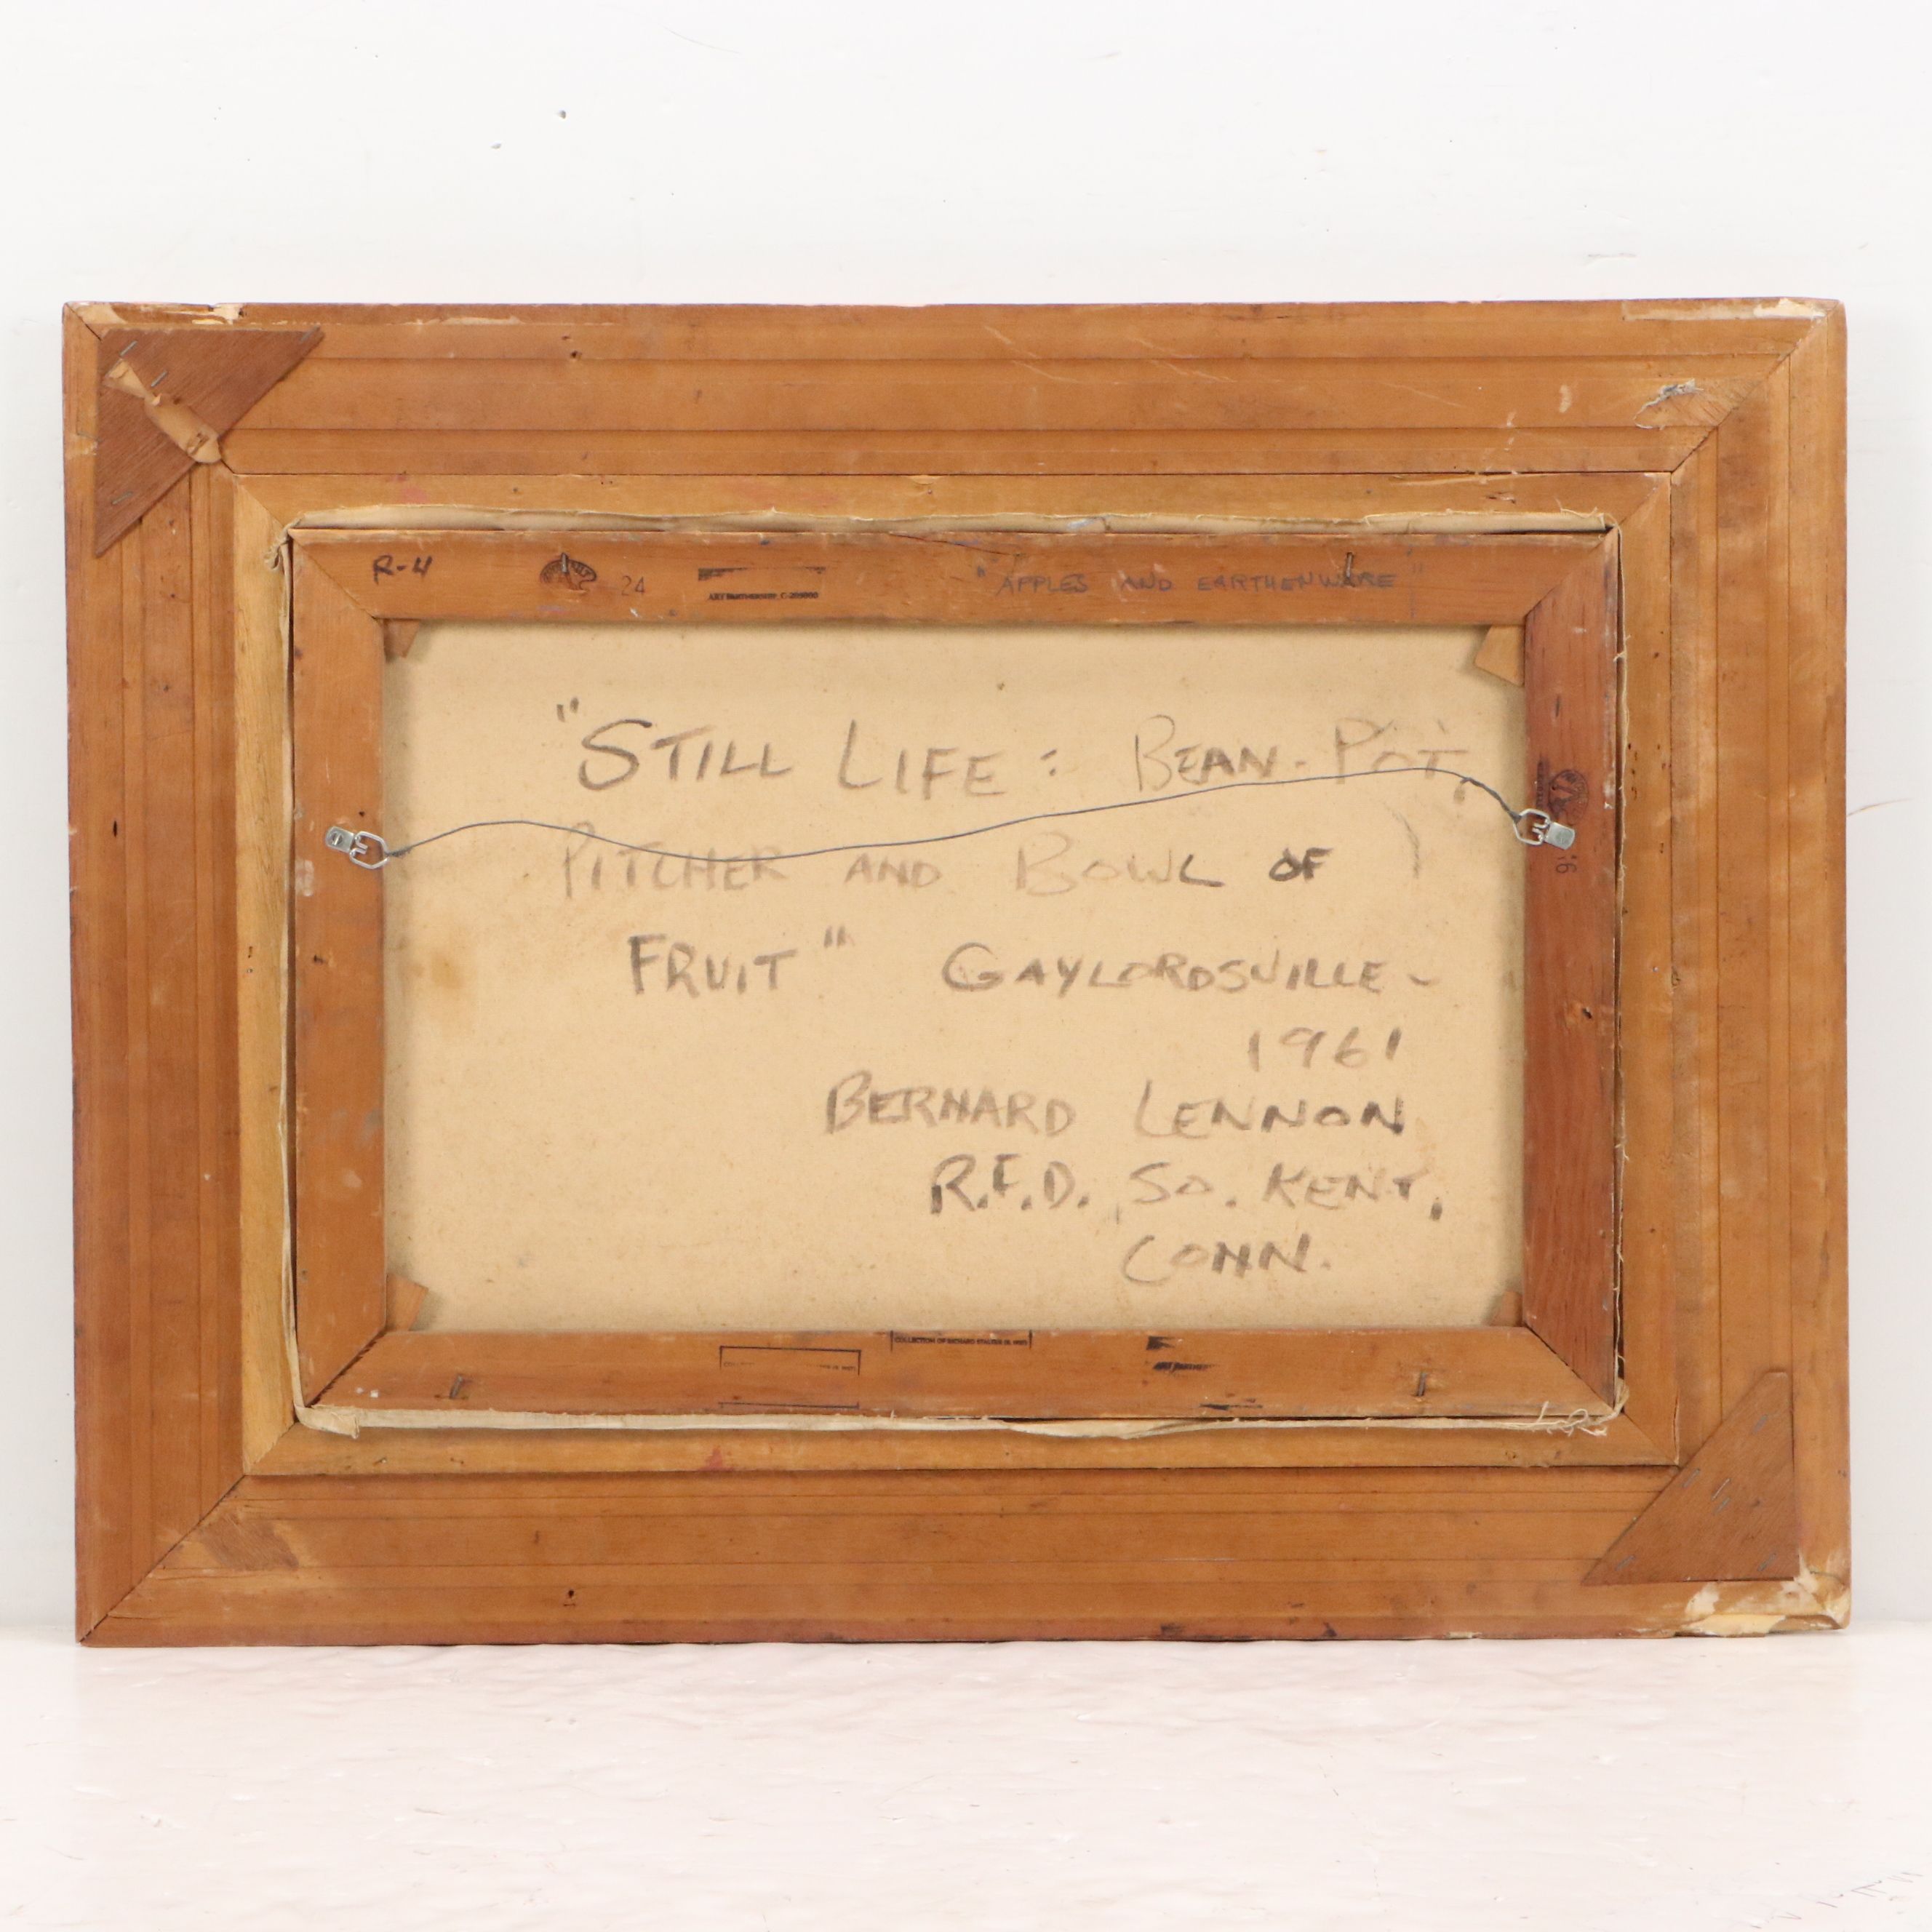 R-4 24 "APPLES AND EARTHENWARE"
"STILL LIFE: BEAN-POT,
PITCHER AND BOWL OF
FRUIT" GAYLORDSVILLE-
1961
BERNARD LENNON
R.F.D. SO. KENT,
CONN.
16
COLLECTION OF